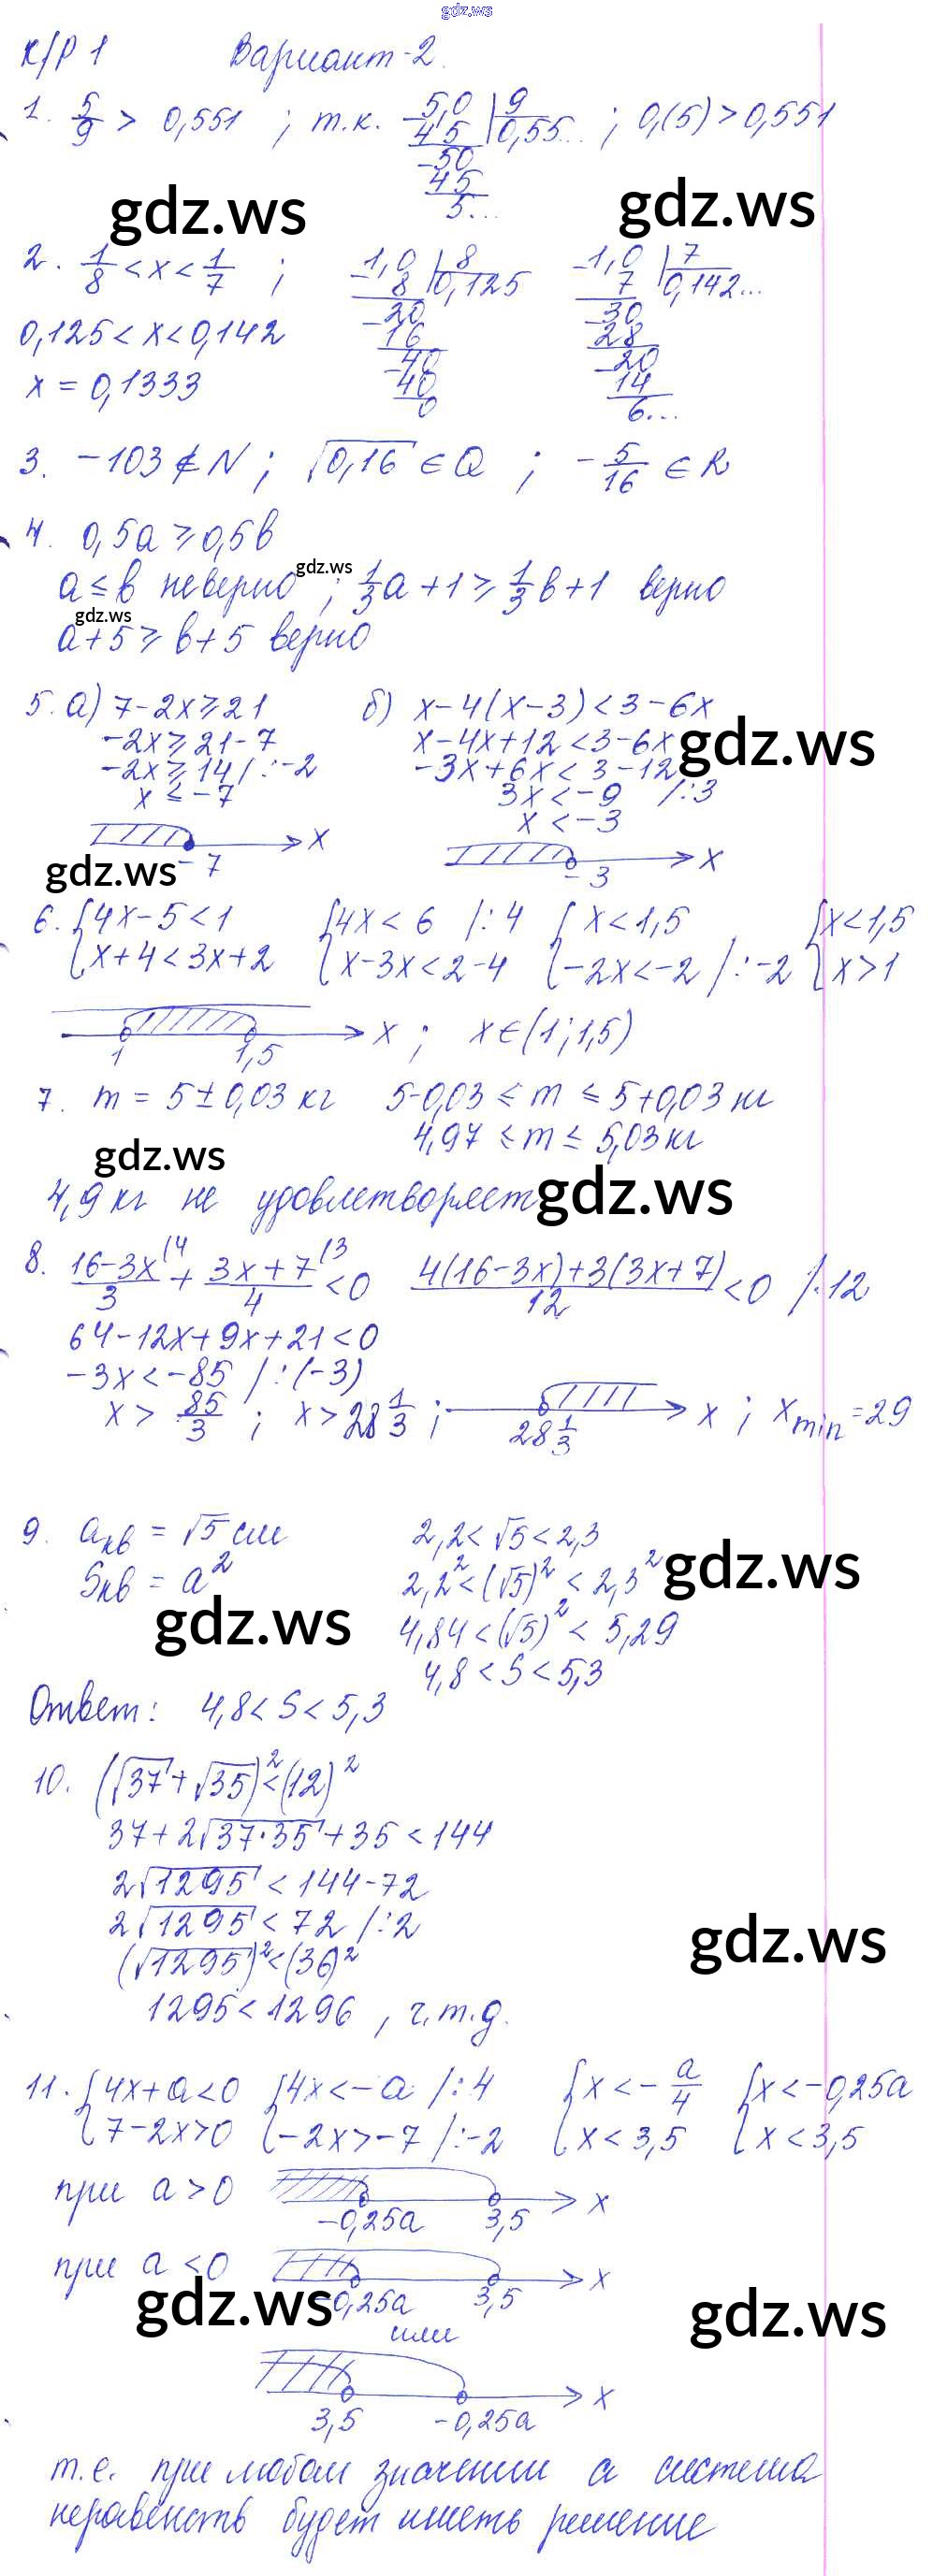 gdz.ws
К/Р 1 Вариант-2.
1. 5/9 > 0,551 ; т.к. 5,0 | 9 ; 0,(5) > 0,551
45 0,55...
-50
45
5...
gdz.ws gdz.ws
2. 1/8 < x < 1/7 ; -1,0 | 8 -1,0 | 7
8 0,125 7 0,142...
0,125 < x < 0,142 -20 -30
16 28
x = 0,1333 -40 -20
40 14
0 6...
3. -103 ∉ N ; √0,16 ∈ Q ; -5/16 ∈ R
4. 0,5a ⩾ 0,5b
a ≤ b неверно ; 1/3a + 1 ⩾ 1/3b + 1 верно
gdz.ws
gdz.ws
a + 5 ⩾ b + 5 верно
5. а) 7-2x ⩾ 21 б) x-4(x-3) < 3-6x
-2x ⩾ 21-7 x-4x+12 < 3-6x
gdz.ws
-2x ⩾ 14 /:-2 -3x+6x < 3-12
x ≤ -7 3x < -9 /:3
x < -3
x x
-7 -3
gdz.ws
6. {4x-5<1 {4x<6 /:4 {x<1,5 {x<1,5
{x+4<3x+2 {x-3x<2-4 {-2x<-2 /:-2 {x>1
1 1,5 x ; x∈(1;1,5)
7. m = 5±0,03 кг 5-0,03 ≤ m ≤ 5+0,03 кг
4,97 ≤ m ≤ 5,03 кг
gdz.ws
4,9 кг не удовлетворяет
gdz.ws
8. (16-3x)/3 /4 + (3x+7)/4 /3 < 0 (4(16-3x)+3(3x+7))/12 < 0 /·12
64-12x+9x+21<0
-3x<-85 /:(-3)
x > 85/3 ; x > 28 1/3 ; 28 1/3 x ; xmin = 29
9. aкв = √5 см 2,2 < √5 < 2,3
Sкв = a² 2,2² < (√5)² < 2,3²
gdz.ws
gdz.ws
4,84 < (√5)² < 5,29
4,8 < S < 5,3
Ответ: 4,8 < S < 5,3
10. (√37 + √35)² < (12)²
37+2√37·35+35 < 144
2√1295 < 144-72
2√1295 < 72 /:2
gdz.ws
(√1295)² < (36)²
1295 < 1296 , ч.т.д.
11. {4x+a<0 {4x<-a /:4 {x<-a/4 {x<-0,25a
{7-2x>0 {-2x>-7 /:-2 {x<3,5 {x<3,5
при a > 0 -0,25a 3,5 x
при a < 0 -0,25a 3,5 x
gdz.ws gdz.ws
или
3,5 -0,25a x
т.е. при любом значении a система
неравенств будет иметь решение